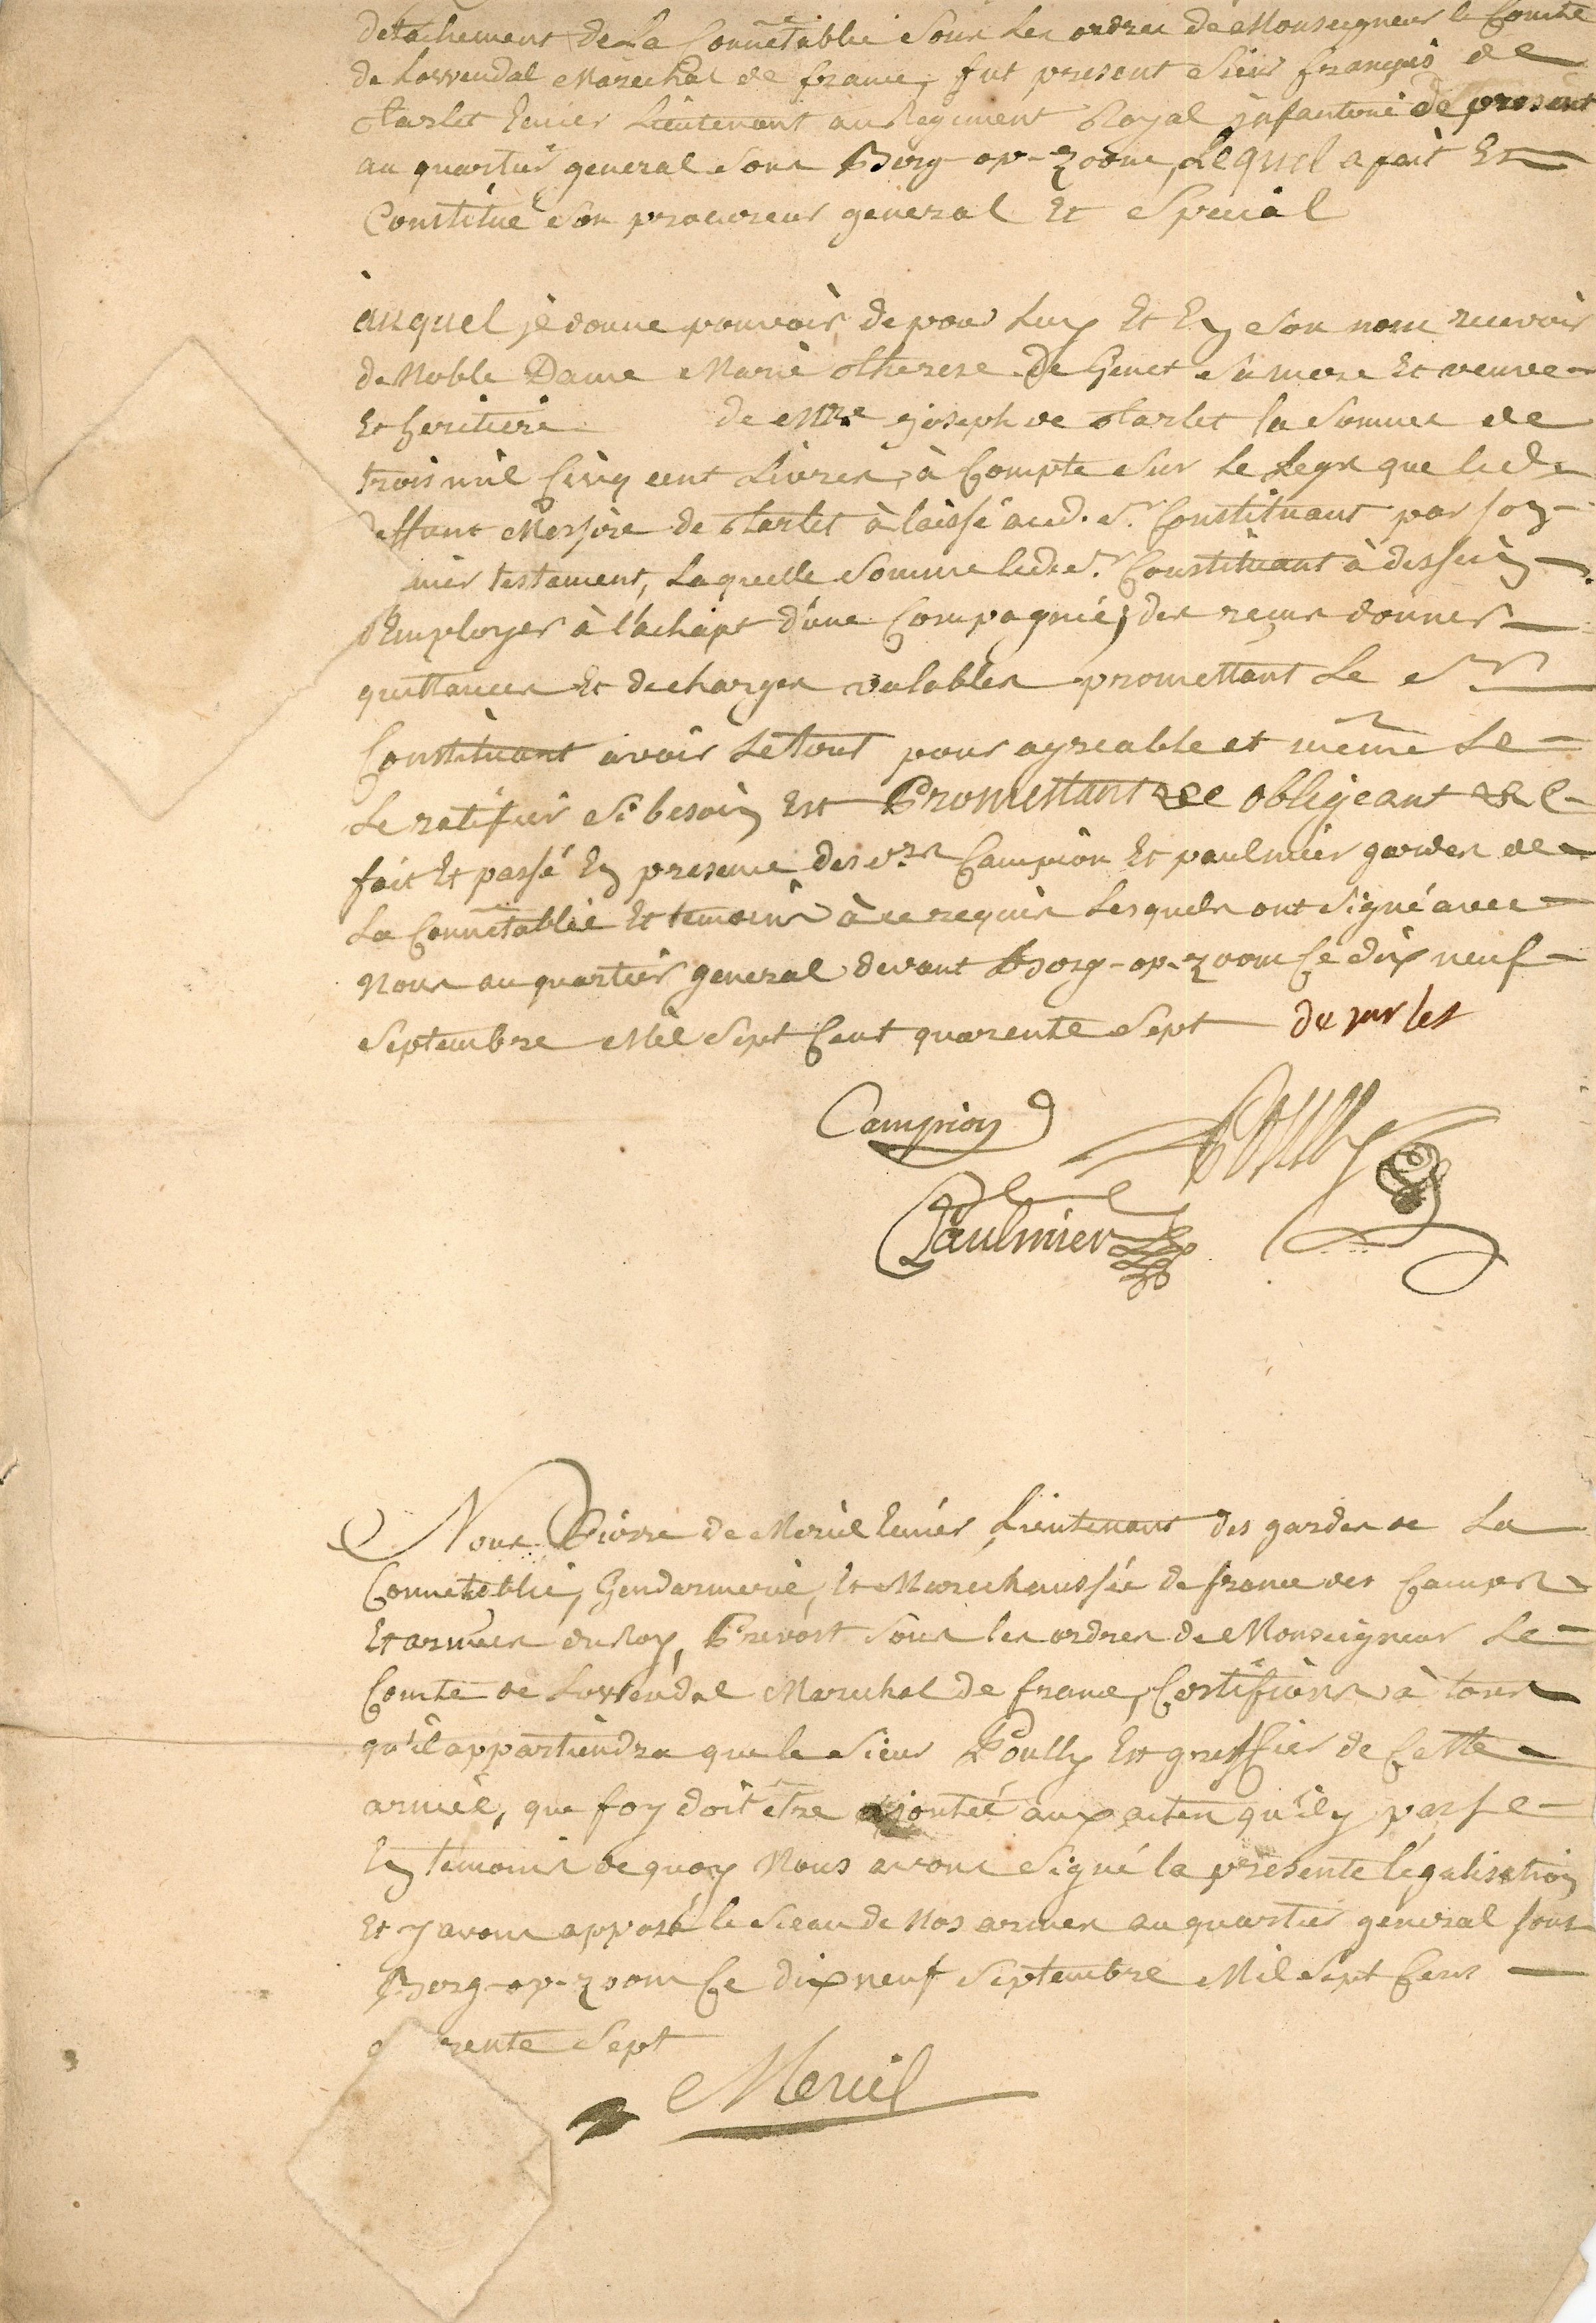 detachement de La Connétablie sous Les ordres de Monseigneur le Comte
de Lowendal Marechal de france, fut present Sieur françois de
Tarlet Ecuier Lieutenant au Regiment Royal infanterie de present
au quartier general sous Berg-op-zoom, Lequel a fait Et
Constitué Son procureur general Et Special
auquel je donne pouvoir de pour Luy Et En Son nom recevoir
de Noble Dame Marie Therese De Genet Sa mere Et veuve
Et heritiere de Mre joseph de Tarlet la Somme de
trois mil Cinq cent Livres, à Compte Sur Le Legs que led.
deffunt Messire de Tarlet à laissé aud. Sr. Constituant par son
nier testament, Laquelle Somme led. Sr. Constituant à dessein
d'Employer à l'achapt d'une Compagnie, des reçus donner
quittances Et decharges valables promettant Le Sr
Constituant avoir Le tout pour agreable et même Le
Le ratifier Si besoin Est Promettant &c obligeant &c
fait Et passé En presence des Srs Campion Et paulmier gardes de
La Connétablie Et temoins à ce requis Lesquels ont Signé avec
Nous au quartier general devant Berg-op-zoom Ce dix neuf
Septembre Mil Sept Cent quarente Sept de tarlet
Campion
Poully
Paulmier
Nous Pierre de Meriel Ecuier, Lieutenant des gardes de La
Connetablie, Gendarmerie, Et Marechaussée de france des Camps
Et armées du Roy, Prevost Sous les ordres de Monseigneur Le
Comte de Lowendal Marechal de france, Certifions à tous
qu'il appartiendra que le Sieur Poully Est greffier de Cette
armée, que foy doit être ajoutée aux actes qu'il y passe
En temoins de quoy Nous avons Signé la presente légalisation
Et y avons apposé le Sceau de Nos armes au quartier general sous
Berg-op-zoom Ce dix neuf Septembre Mil Sept Cens
q rente Sept
Meriel